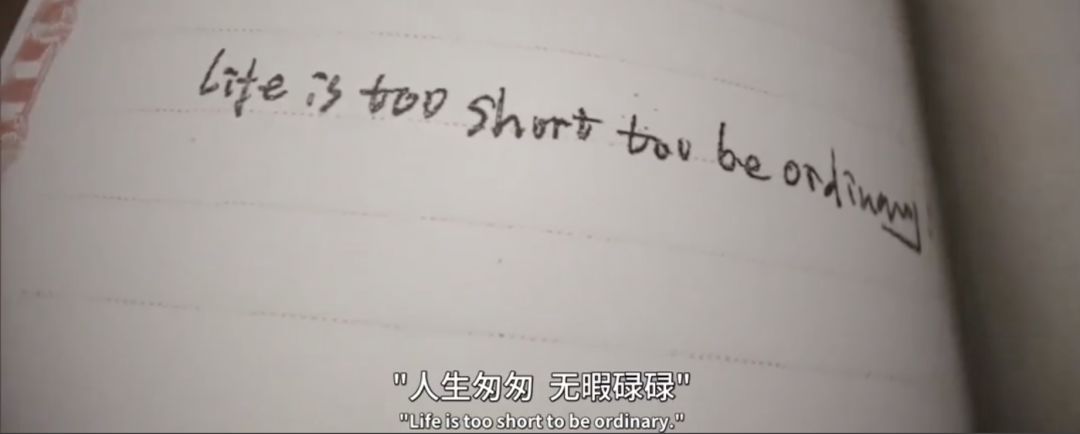 Life is too short too be ordinary.
"人生匆匆 无暇碌碌"
"Life is too short to be ordinary."